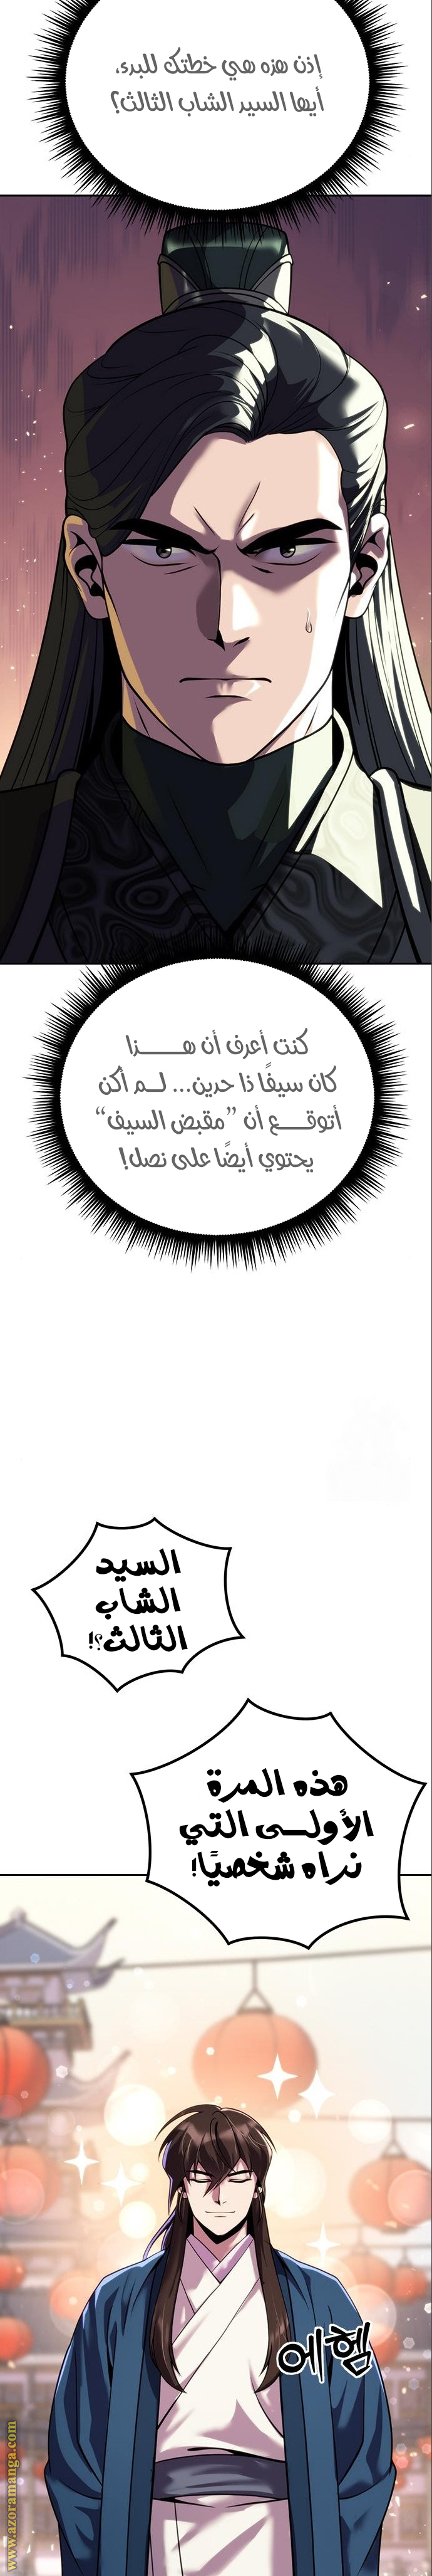 إذن هذه هي خطتك للبدء،
أيها السيد الشاب الثالث؟
كنت أعرف أن هـــــذا
كان سيفًا ذا حدين... لــم أكن
أتوقـــــع أن ”مقبض السيف“
يحتوي أيضًا على نصل!
السيد
الشاب
الثالث؟!
هذه المرة
الأولــــى التي
نراه شخصيًا!
에헴
www.azoramanga.com